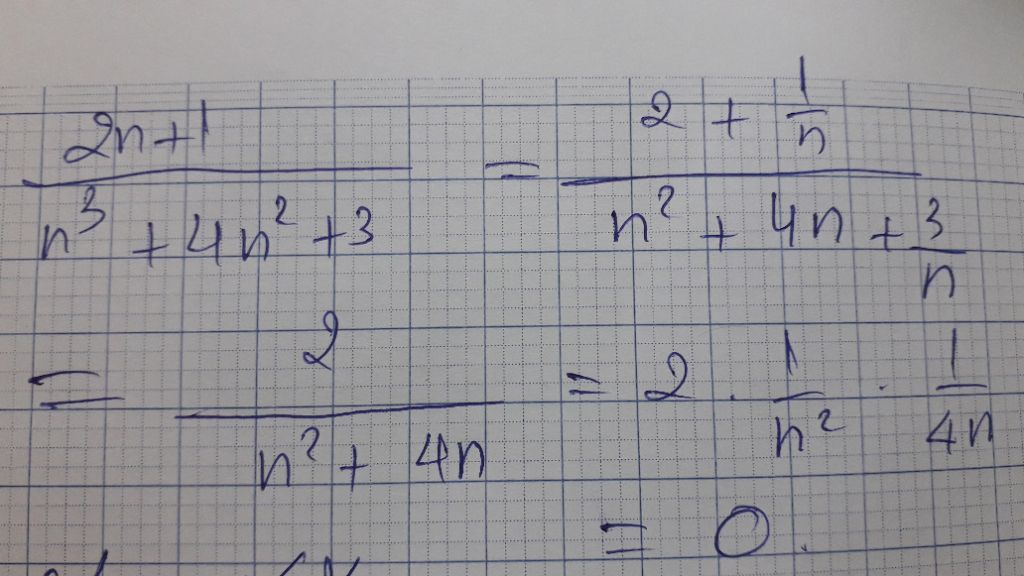 (2n+1)/(n³ + 4n² + 3) = (2 + 1/n)/(n² + 4n + 3/n)
= 2/(n² + 4n) = 2 · 1/n² · 1/4n
= 0.